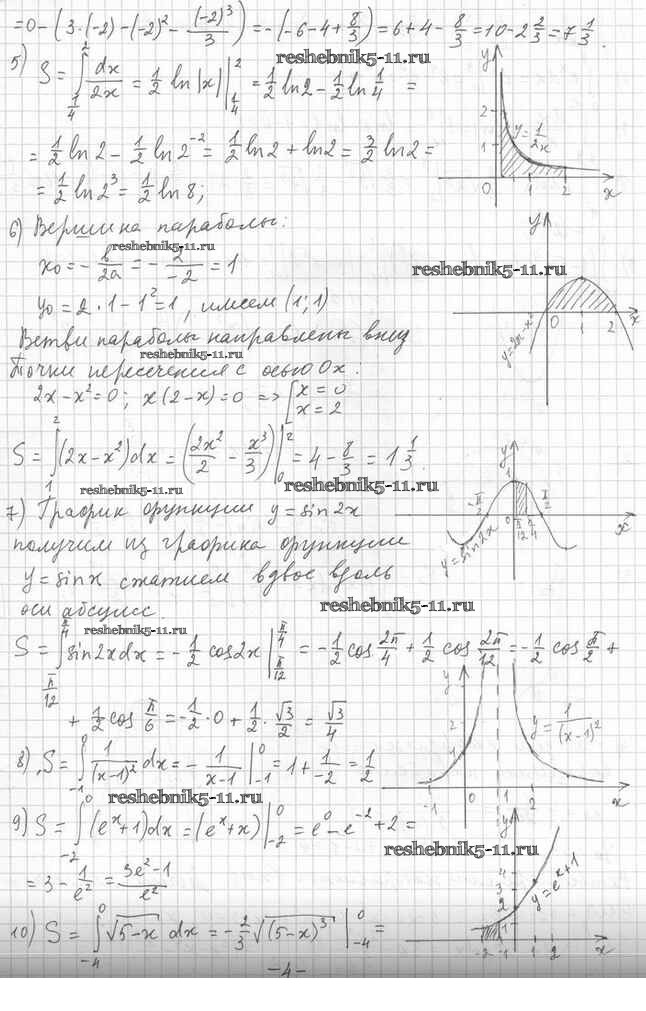 = 0 − (3·(−2) − (−2)² − (−2)³/3) = −(−6 − 4 + 8/3) = 6 + 4 − 8/3 = 10 − 2 2/3 = 7 1/3.
reshebnik5-11.ru
5) S = ∫_{1/4}^{2} dx/2x = 1/2 ln|x| |_{1/4}^{2} = 1/2 ln2 − 1/2 ln 1/4 =
y 2 1 y = 1/2x 0 1 2 x
= 1/2 ln 2 − 1/2 ln 2⁻² = 1/2 ln 2 + ln 2 = 3/2 ln 2 =
= 1/2 ln 2³ = 1/2 ln 8;
6) Вершина параболы:
reshebnik5-11.ru
x₀ = − b/2a = − 2/−2 = 1
reshebnik5-11.ru
y₀ = 2·1 − 1² = 1, имеем (1; 1)
y 0 1 2 x y = 2x − x²
Ветви параболы направлены вниз
reshebnik5-11.ru
Точки пересечения с осью Ox:
2x − x² = 0; x(2 − x) = 0 => [x = 0
x = 2
S = ∫_{1}^{2} (2x − x²)dx = (2x²/2 − x³/3) |_{0}^{2} = 4 − 8/3 = 1 1/3.
reshebnik5-11.ru
reshebnik5-11.ru
7) График функции y = sin 2x
y 1 −π/2 0 π/12 π/4 π/2 x y = sin 2x
получим из графика функции
y = sin x сжатием вдвое вдоль
оси абсцисс
reshebnik5-11.ru
reshebnik5-11.ru
S = ∫_{π/12}^{π/4} sin 2x dx = −1/2 cos 2x |_{π/12}^{π/4} = −1/2 cos 2π/4 + 1/2 cos 2π/12 = −1/2 cos π/2 +
+ 1/2 cos π/6 = −1/2·0 + 1/2·√3/2 = √3/4
y 2 1 y = 1/(x−1)² −1 0 1 2 x
8) S = ∫_{−1}^{0} 1/(x−1)² dx = − 1/(x−1) |_{−1}^{0} = 1 + 1/−2 = 1/2
reshebnik5-11.ru
9) S = ∫_{−2}^{0} (eˣ + 1)dx = (eˣ + x) |_{−2}^{0} = e⁰ − e⁻² + 2 =
reshebnik5-11.ru
= 3 − 1/e² = (3e² − 1)/e²
y 4 3 2 1 y = eˣ + 1 −2 −1 1 2 x
10) S = ∫_{−4}^{0} √(5−x) dx = −2/3 √(5−x)³ |_{−4}^{0} =
−4−